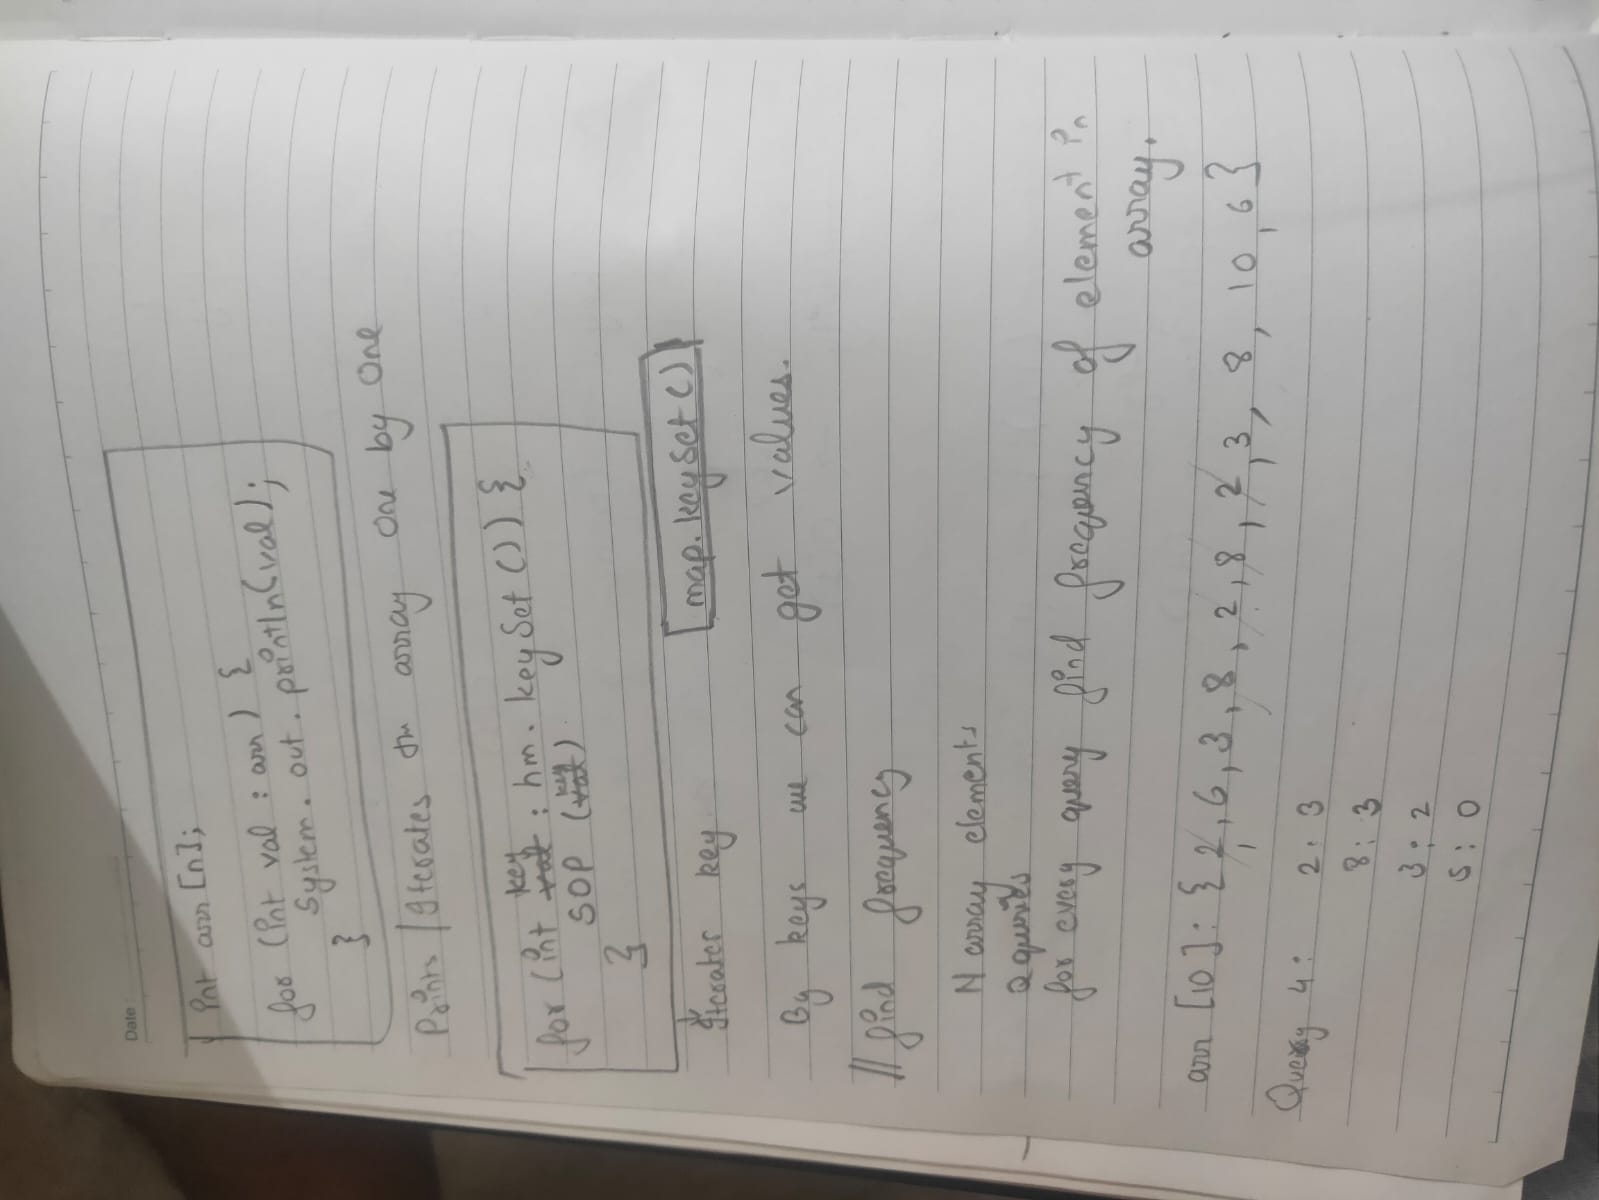 Date :
int arr [n];
for (int val : arr) {
System. out. println(val);
}
Prints / Iterates the array one by one
for (int key : hm. keySet ()) {
SOP (key)
}
Iterates key map. keyset ()
By keys we can get values.
// find frequency
N array elements
Q queries
for every query find frequency of element in
array.
arr [10] : { 2, 6, 3, 8, 2, 8, 2, 3, 8, 10, 6}
Query 4 : 2 : 3
8 : 3
3 : 2
5 : 0